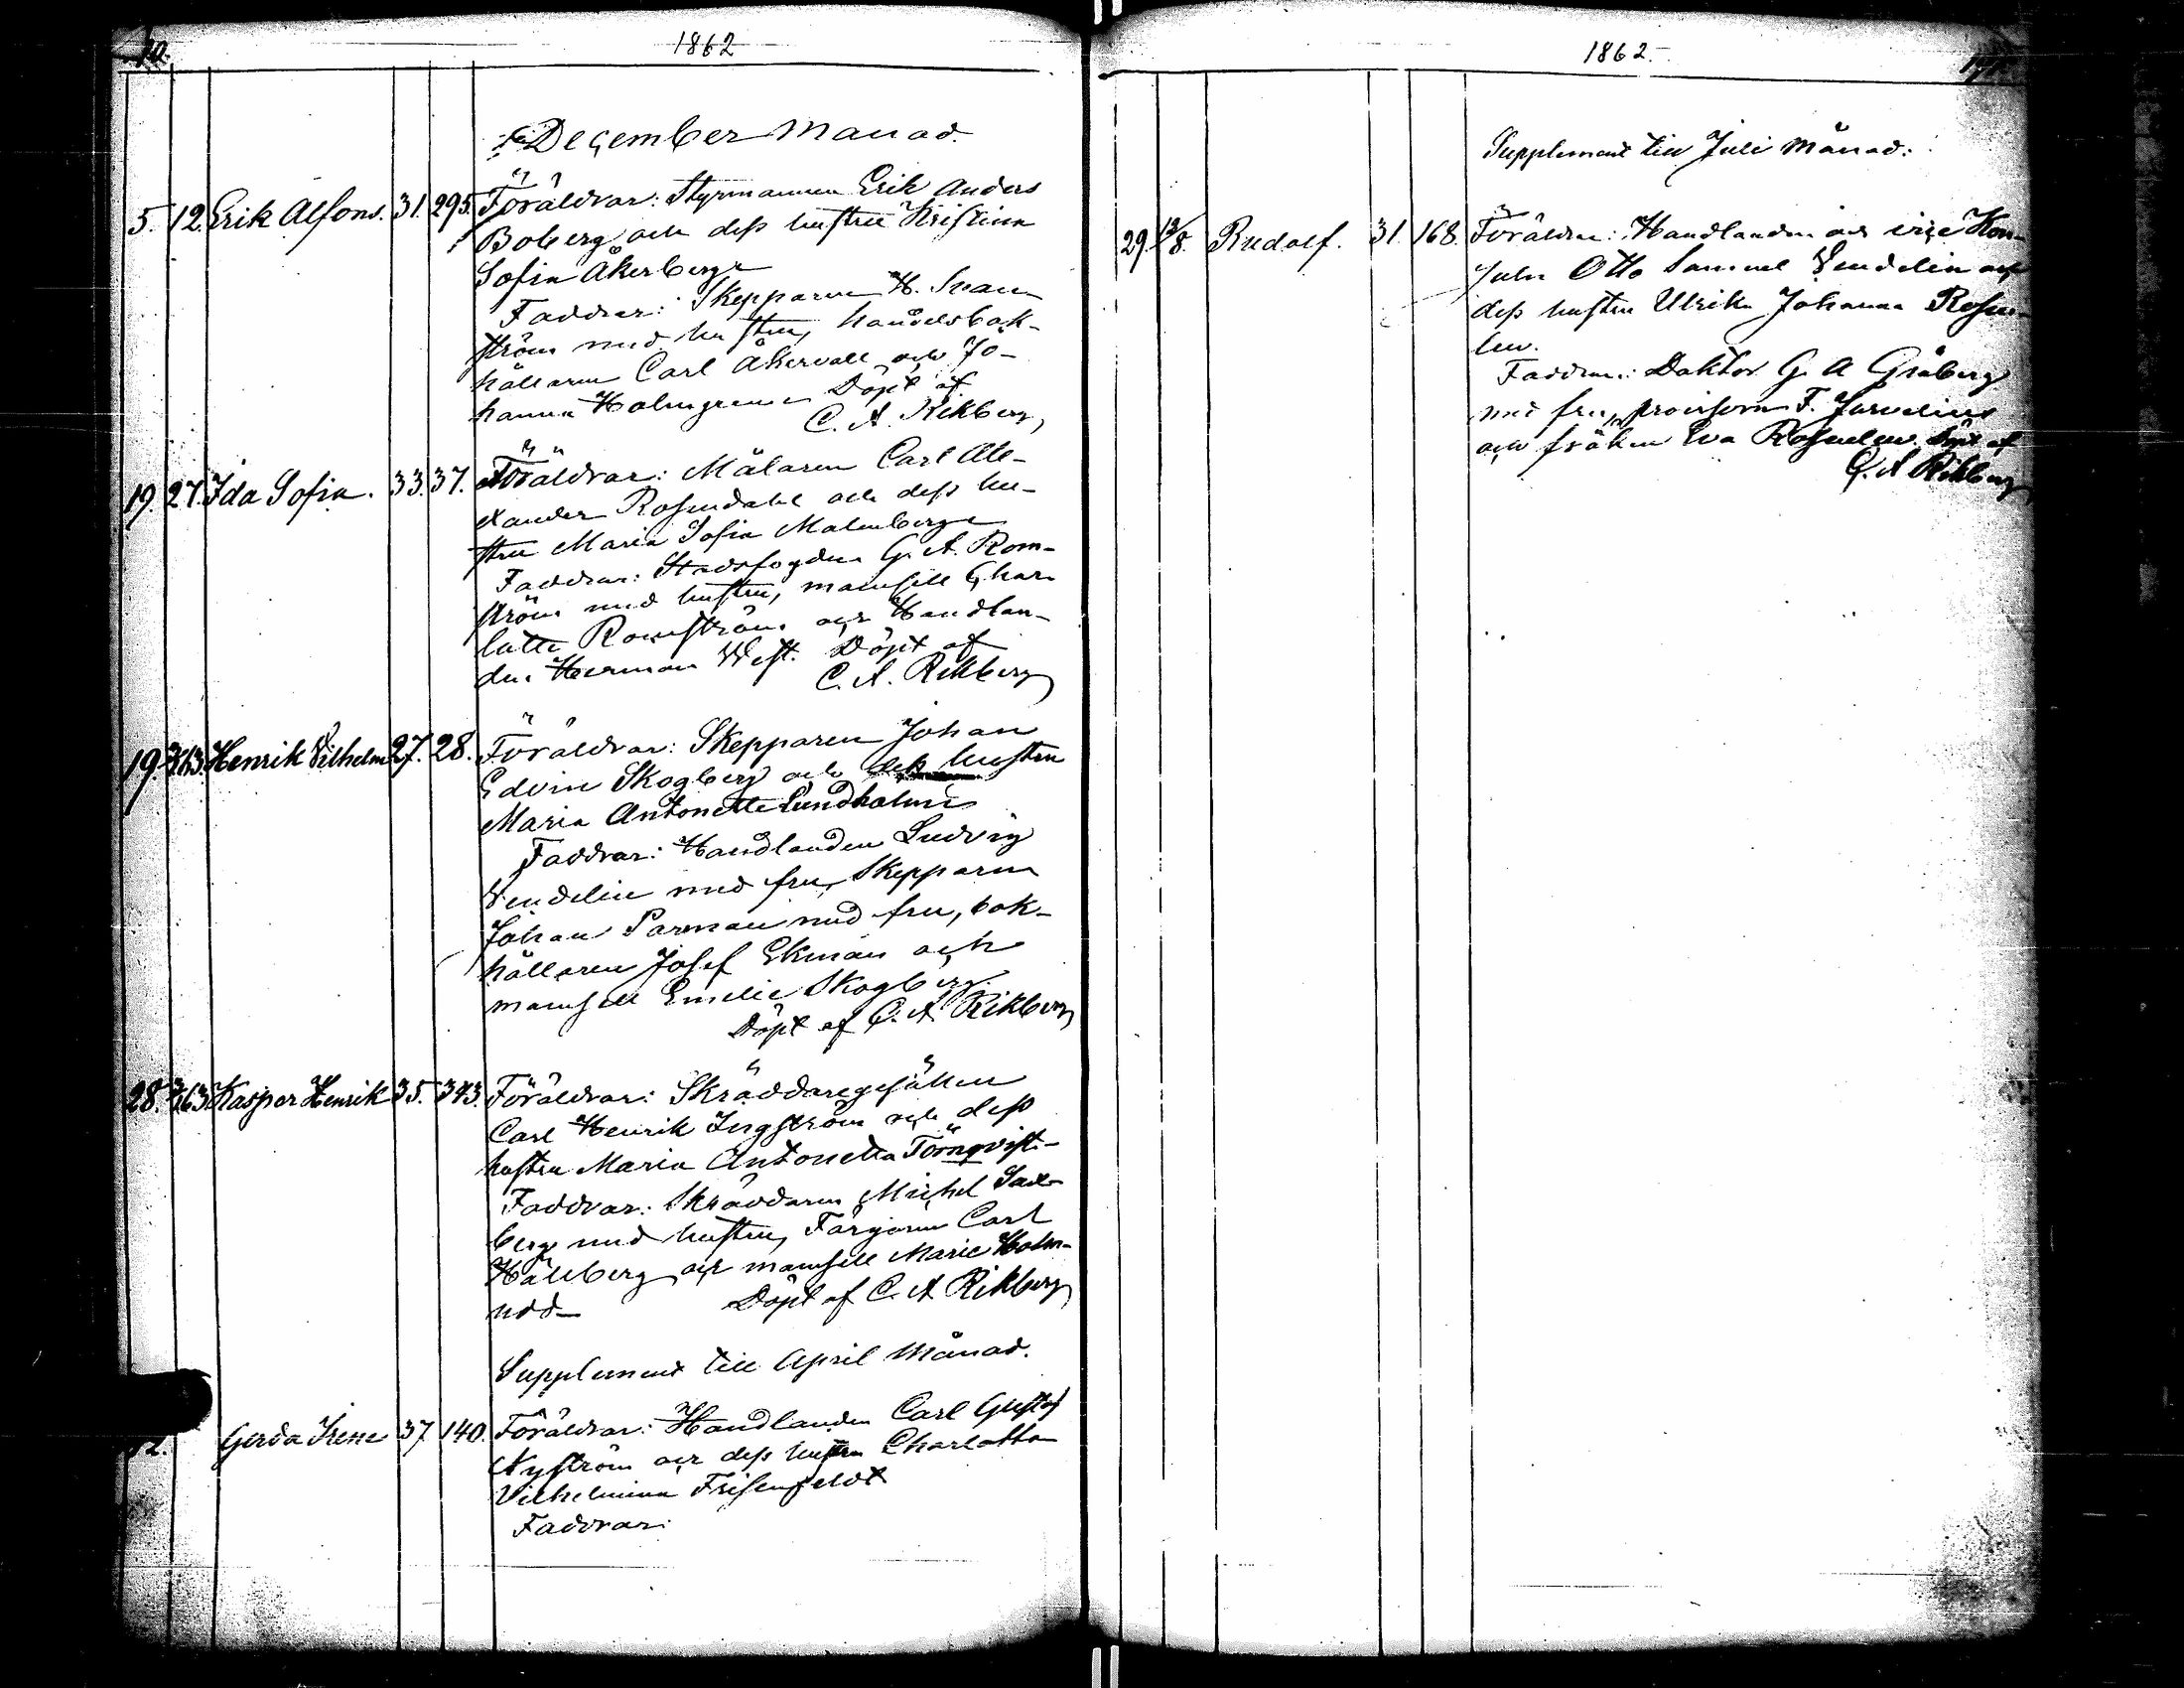 1862
December Månad.
5. 12. Erik Alfons. 31. 295. Föräldrar: Styrmannen Erik Anders
Boberg och dess hustru Kristina
Sofia Åkerberg
Faddrar: Skepparen H. Svan-
ström med hustru, handelsbok-
hållaren Carl Åkervall och Jo-
hanna Holmgren Döpt af
C. A. Rikberg
19. 27. Ida Sofia. 33. 37. Föräldrar: Målaren Carl Ale-
xander Rosendahl och dess hu-
stru Maria Sofia Malmberg
Faddrar: Stadsfogden G. A. Rom-
ström med hustru, mamsell Char-
lotte Romström och Handlan-
den Herman West. Döpt af
C. A. Rikberg
19. Henrik Vilhelm 27. 28. Föräldrar: Skepparen Johan
Edvin Skogberg och dess hustru
Maria Antonette Lundholm
Faddrar: Handlanden Ludvig
Vendelin med fru, Skepparen
Johan Parman med fru, bok-
hållaren Josef Ekman och
mamsell Emelie Skogberg.
Döpt af C. A. Rikberg
28. Kasper Henrik 35. 343. Föräldrar: Skräddaregesällen
Carl Henrik Ingström och dess
hustru Maria Antonetta Törnqvist
Faddrar: Skräddaren Michel Sax-
berg med hustru, Färgaren Carl
Hällberg och mamsell Marie Holm-
udd Döpt af C. A. Rikberg
Supplement till April Månad.
12. Gerda Irene 37. 140. Föräldrar: Handlanden Carl Gustaf
Nyström och dess hustru Charlotta
Vilhelmina Frisenfeldt
Faddrar:
1862.
Supplement till Juli Månad.
29. Rudolf. 31. 168. Föräldrar: Handlanden och vice Kon-
suln Otto Samuel Vendelin och
dess hustru Ulrika Johanna Rosen-
lew.
Faddrar: Doktor G. A. Gråberg
med fru, provisorn F. Juvelius
och fröken Eva Rosenlew. Döpt af
C. A. Rikberg